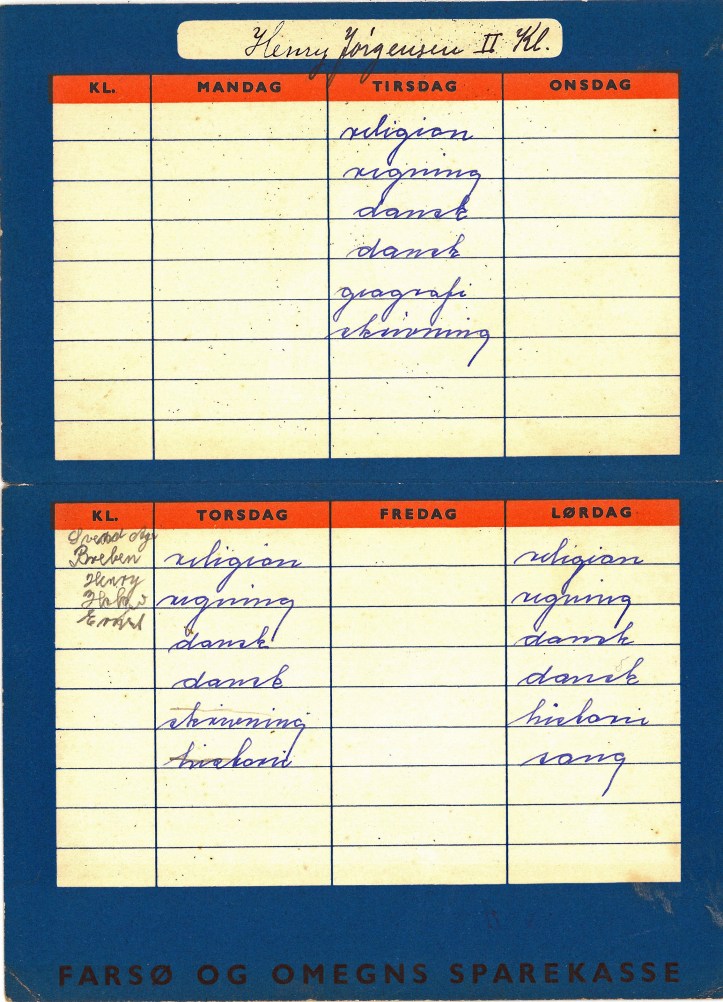 Henry Jørgensen II Kl.
KL. MANDAG TIRSDAG ONSDAG
religion
regning
dansk
dansk
geografi
skrivning
KL. TORSDAG FREDAG LØRDAG
Svend
Preben religion religion
Henry
regning regning
dansk dansk
dansk dansk
skrivning historie
historie sang
FARSØ OG OMEGNS SPAREKASSE